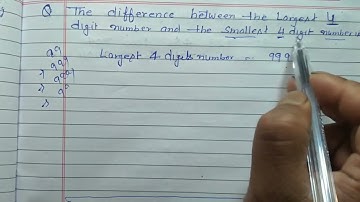 Q The difference between the Largest 4
digit number and the smallest 4 digit number
Largest 4-digits number = 999
99
999